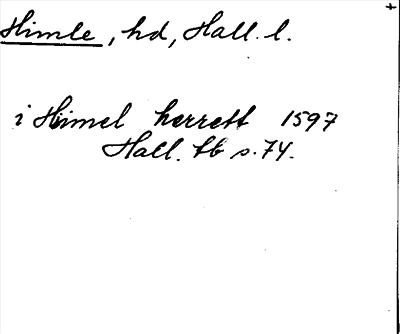 Himle, hd, Hall. l.
i Himel herrett 1597
Hall. tb s. 74.